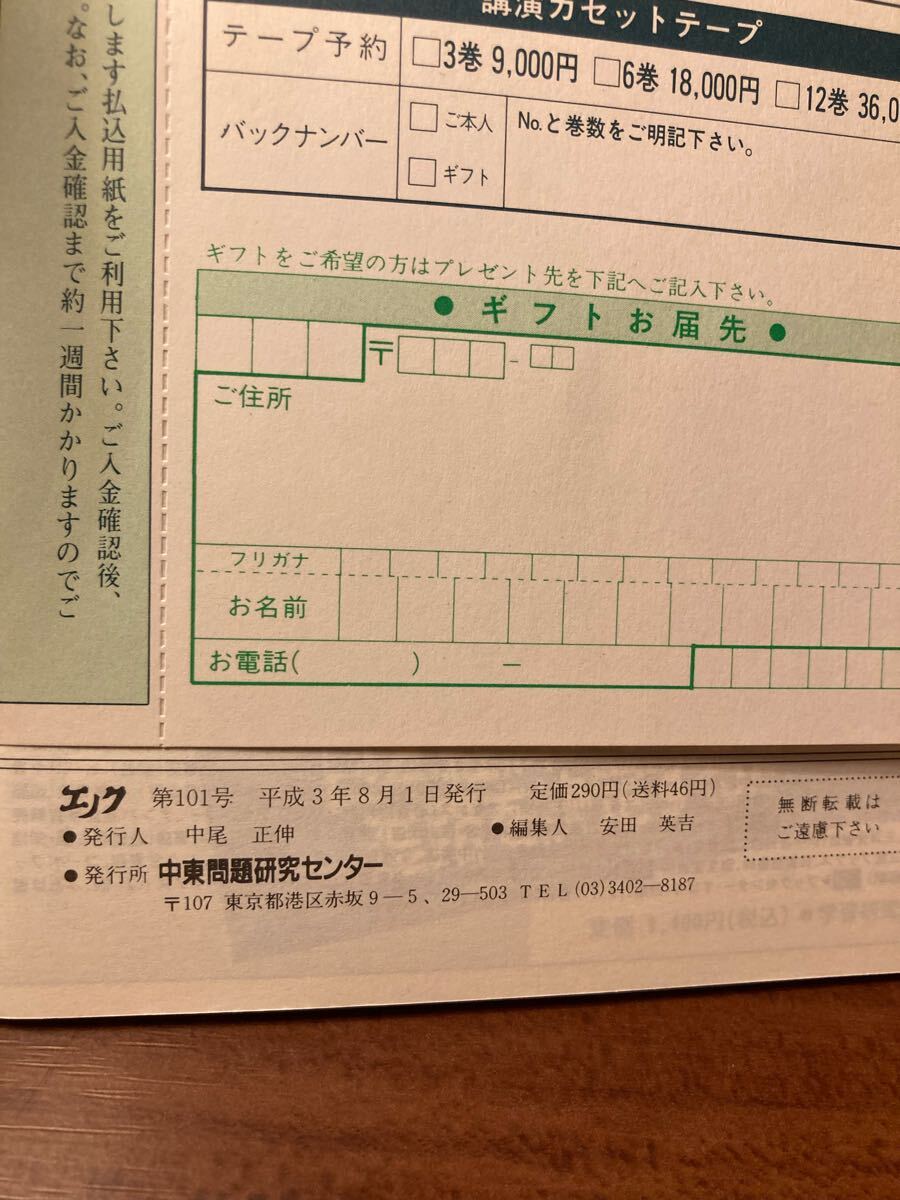 します払込用紙をご利用下さい。ご入金確認後、
。なお、ご入金確認まで約一週間かかりますのでご
講演カセットテープ
テープ予約
□3巻 9,000円 □6巻 18,000円 □12巻 36,0
バックナンバー
□ご本人
□ギフト
No.と巻数をご明記下さい。
ギフトをご希望の方はプレゼント先を下記へご記入下さい。
●ギフトお届先●
〒 -
ご住所
フリガナ
お名前
お電話( ) −
エノク 第101号 平成3年8月1日発行 定価290円(送料46円)
●発行人 中尾 正伸 ●編集人 安田 英吉
●発行所 中東問題研究センター
〒107 東京都港区赤坂9−5、29−503 TEL(03)3402−8187
無断転載は
ご遠慮下さい